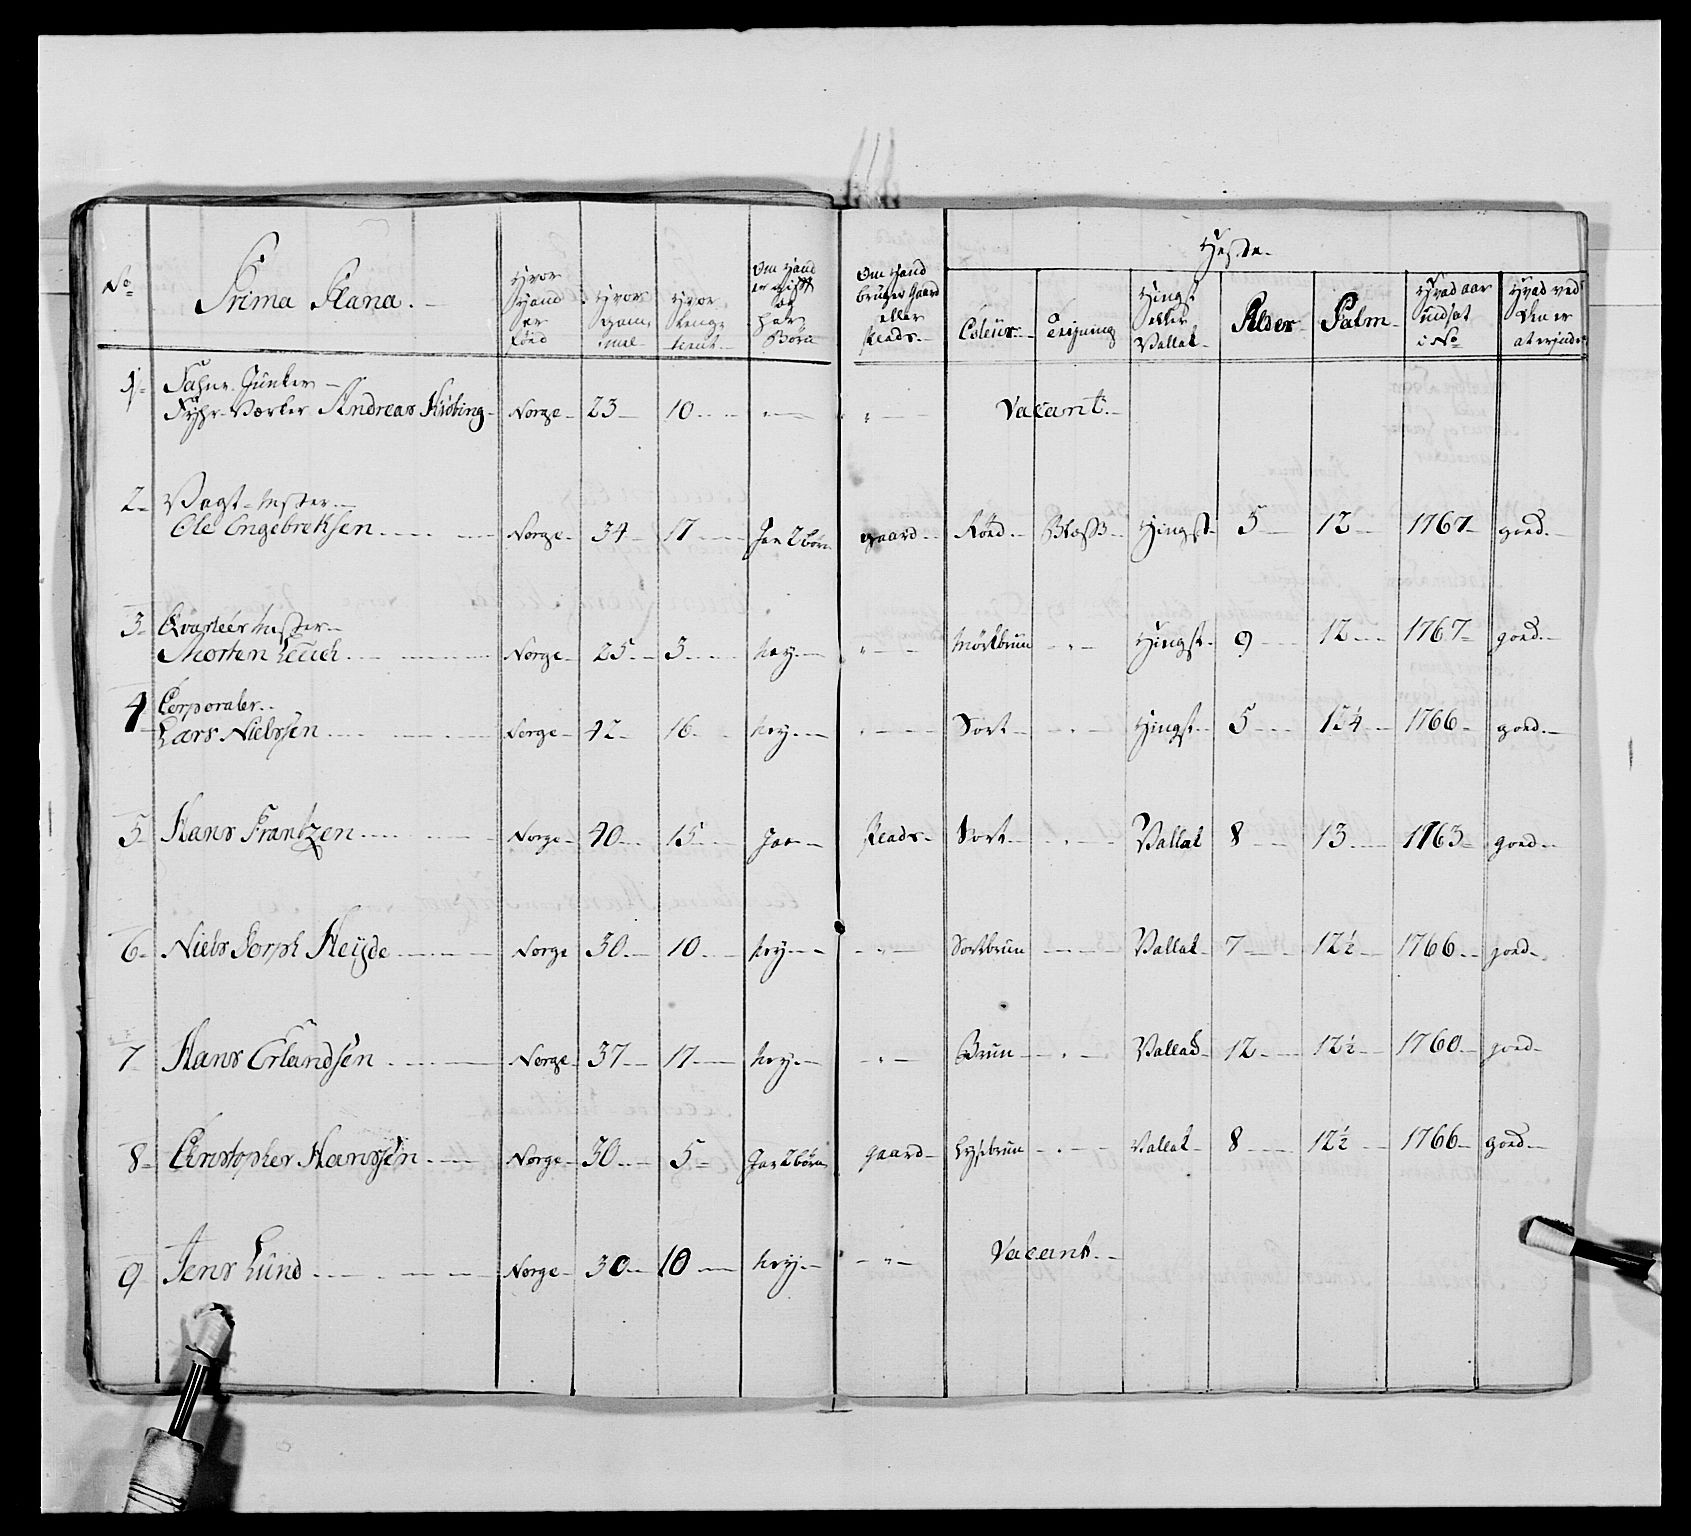 No
Prima Plana.
Hvor Hand er Fød
Hvor Gam mel
Hvor Lenge tient
Om Hand er gift og har Børn
Om Hand bruger Gaard eller Plads.
Heste.
Coleur
Teigning
Hingst eller Vallak
Alder
Palm
Hvad aar indsat i No
Hvad ved den er at erindre
1 Fahne Junker
Fyhr-Værker Andreas Kisbing Norge 23 10 Vacant.
2 Vagt-Mester
Ole Engebretsen Norge 34 17 Jaa 2 børn gaard Rød Blesss Hingst 5 12 1767 goed
3 Qvarteer Mester
Morten Leuch Norge 25 3 Ney Mørkbrun Hingst 9 12 1767 goed
4 Corporaler
Lars Nielssen Norge 42 16 Ney Sort Hingst 5 12¼ 1766 goed
5 Hans Frantzen Norge 40 15 Jaa Plads Sort Vallak 8 13 1763 goed
6 Niels Dorph Heyde Norge 30 10 Ney Sortbrun Vallak 7 12½ 1766 goed
7 Hans Erlandsen Norge 37 17 Ney Brun Vallak 12 12½ 1760 goed
8 Christopher Hanssen Norge 30 5 Jaa 2 børn gaard Lysebrun Vallak 8 12½ 1766 goed
9 Jens Lund Norge 30 10 Ney Vacant